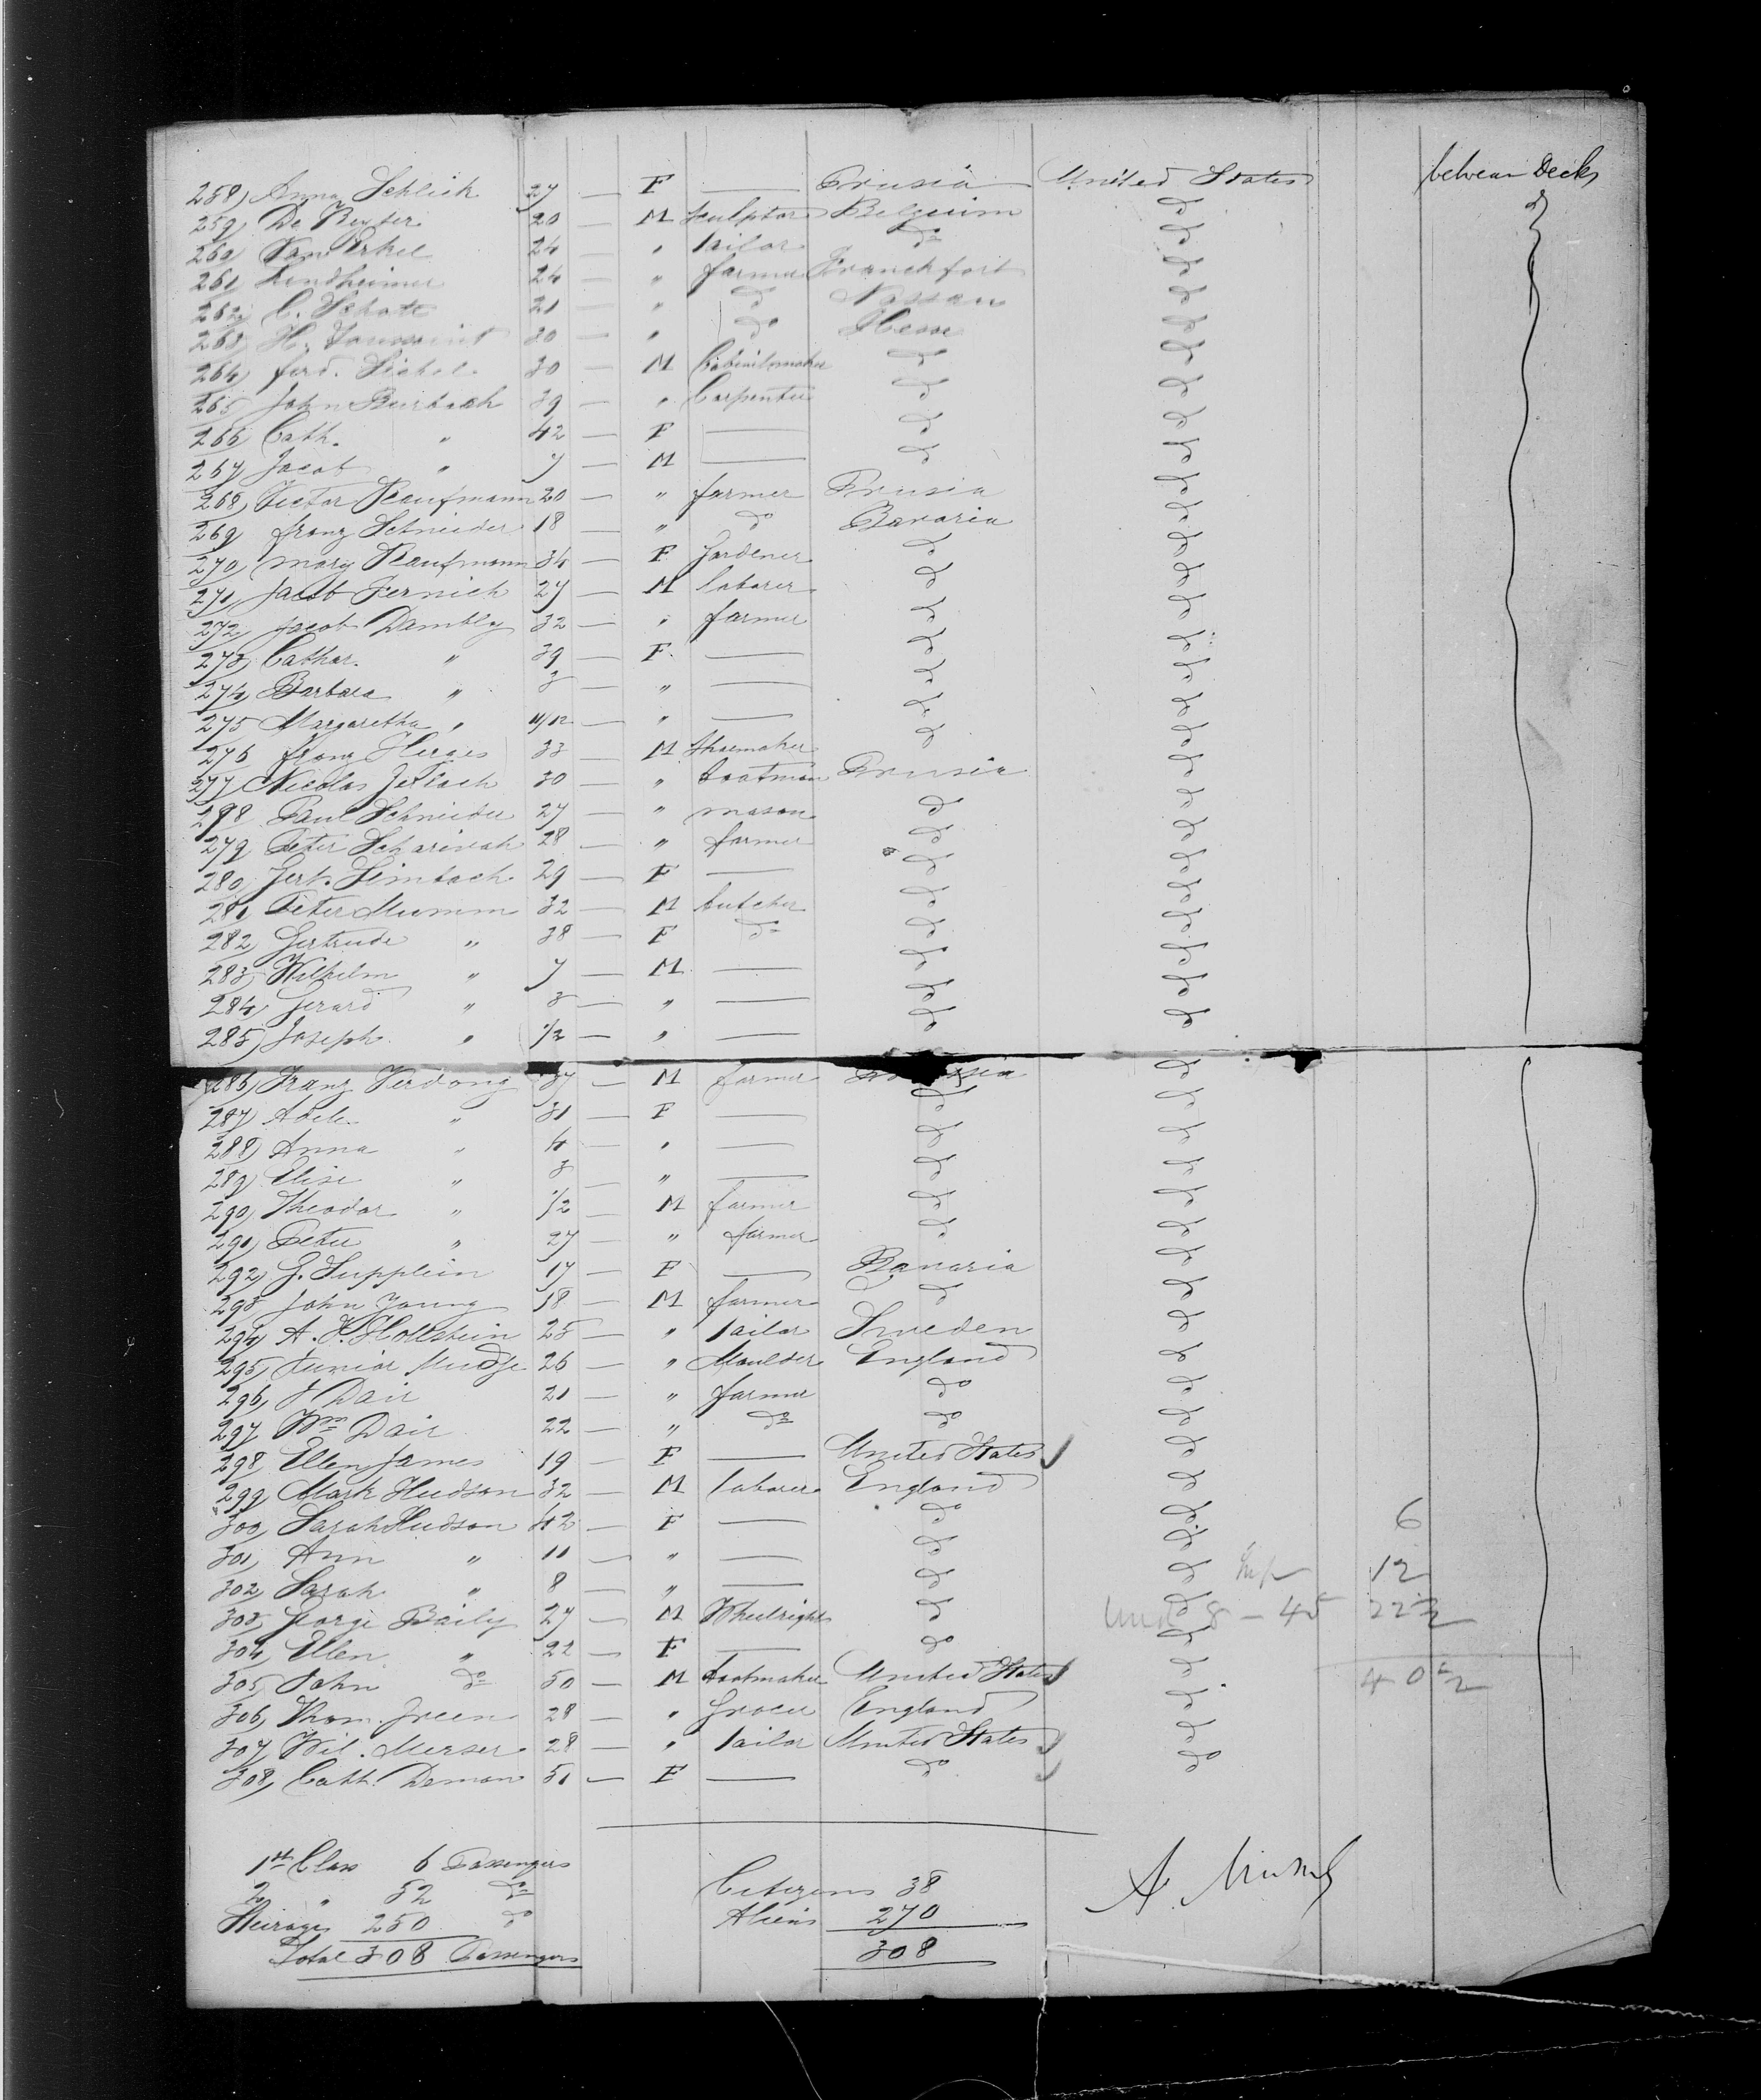 258) Anna Schlick 27 — F — Prusia United States between Decks
259) De Ruyter 20 — M Sculptor Belguim do do
260) Van Erkel 24 — " tailor do do
261) Lindheimer 24 — " farmer Franckfort do
262) C. Schott 21 — " do Nassau do
263) H. 30 — " do Hesse do
264) ferd. Sichel 30 — M Cabinetmaker do do
265 John Burbach 39 — " Carpenter do do
266 Cath. " 42 — F — do do
267 Jacob " 7 — M — do do
268) Victor Kaufmann 20 — " farmer Prusia do
269 franz Schneider 18 — " do Bavaria do
270) Mary Kaufmann 34 — F Gardener do do
271) Jacob Fernich 27 — M laborer do do
272) Jacob Dambly 32 — " farmer do do
273) Cathar. " 39 — F — do do
274) Barbara " 3 — " — do do
275 Margaretha " 11/12 — " — do do
276 franz Herges 33 — M Shoemaker do do
277 Nicolas 30 — " boatman Prusia do
278 Paul Schneider 27 — " mason do do
279 Peter 28 — " farmer do do
280) Gert. Simbach 29 — F — do do
281 Peter Mumm 32 — M butcher do do
282) Gertrude " 38 — F do do do
283) Wilhelm " 7 — M — do do
284) Gerard " 3 — " — do do
285) Joseph " 1/2 — " — do do
286) Franz Verdong 37 — M farmer do
287) Adele " 31 — F — do do
288) Anna " 4 — " — do do
289) Elise " 3 — " — do do
290) Theodor " 1/2 — M farmer do do
291) Peter " 27 — " farmer do do
292) G. Supplein 17 — F — Bavaria do
293 John Young 18 — M farmer do do
294) A. F. Hollstein 25 — " tailor Sweden do
295) Junior Mudge 26 — " Moulder England do
296) J Dair 21 — " farmer do do
297 Wm Dair 22 — " do do do
298 Ellen James 19 — F — United States do
299 Mark Hudson 32 — M laborer England do
300) Sarah Hudson 42 — F — do do 6
301) Ann " 11 — " — do do
302) Sarah " 8 — " — do do 12
303) George Baily 27 — M Wheelright do do 8 — 45 22 1/2
304) Ellen " 22 — F — do do
305) John do 50 — M bootmaker United States do 40 1/2
306) Thom. Green 28 — " Grocer England do
307 Wil. Merser 28 — " tailor United States do
308) Cath. Deman 51 — F — do do
1st Class 6 Passengers
2 " 52 do
Steirage 250 do
Total 308 Passengers
Citizens 38
Aliens 270
308